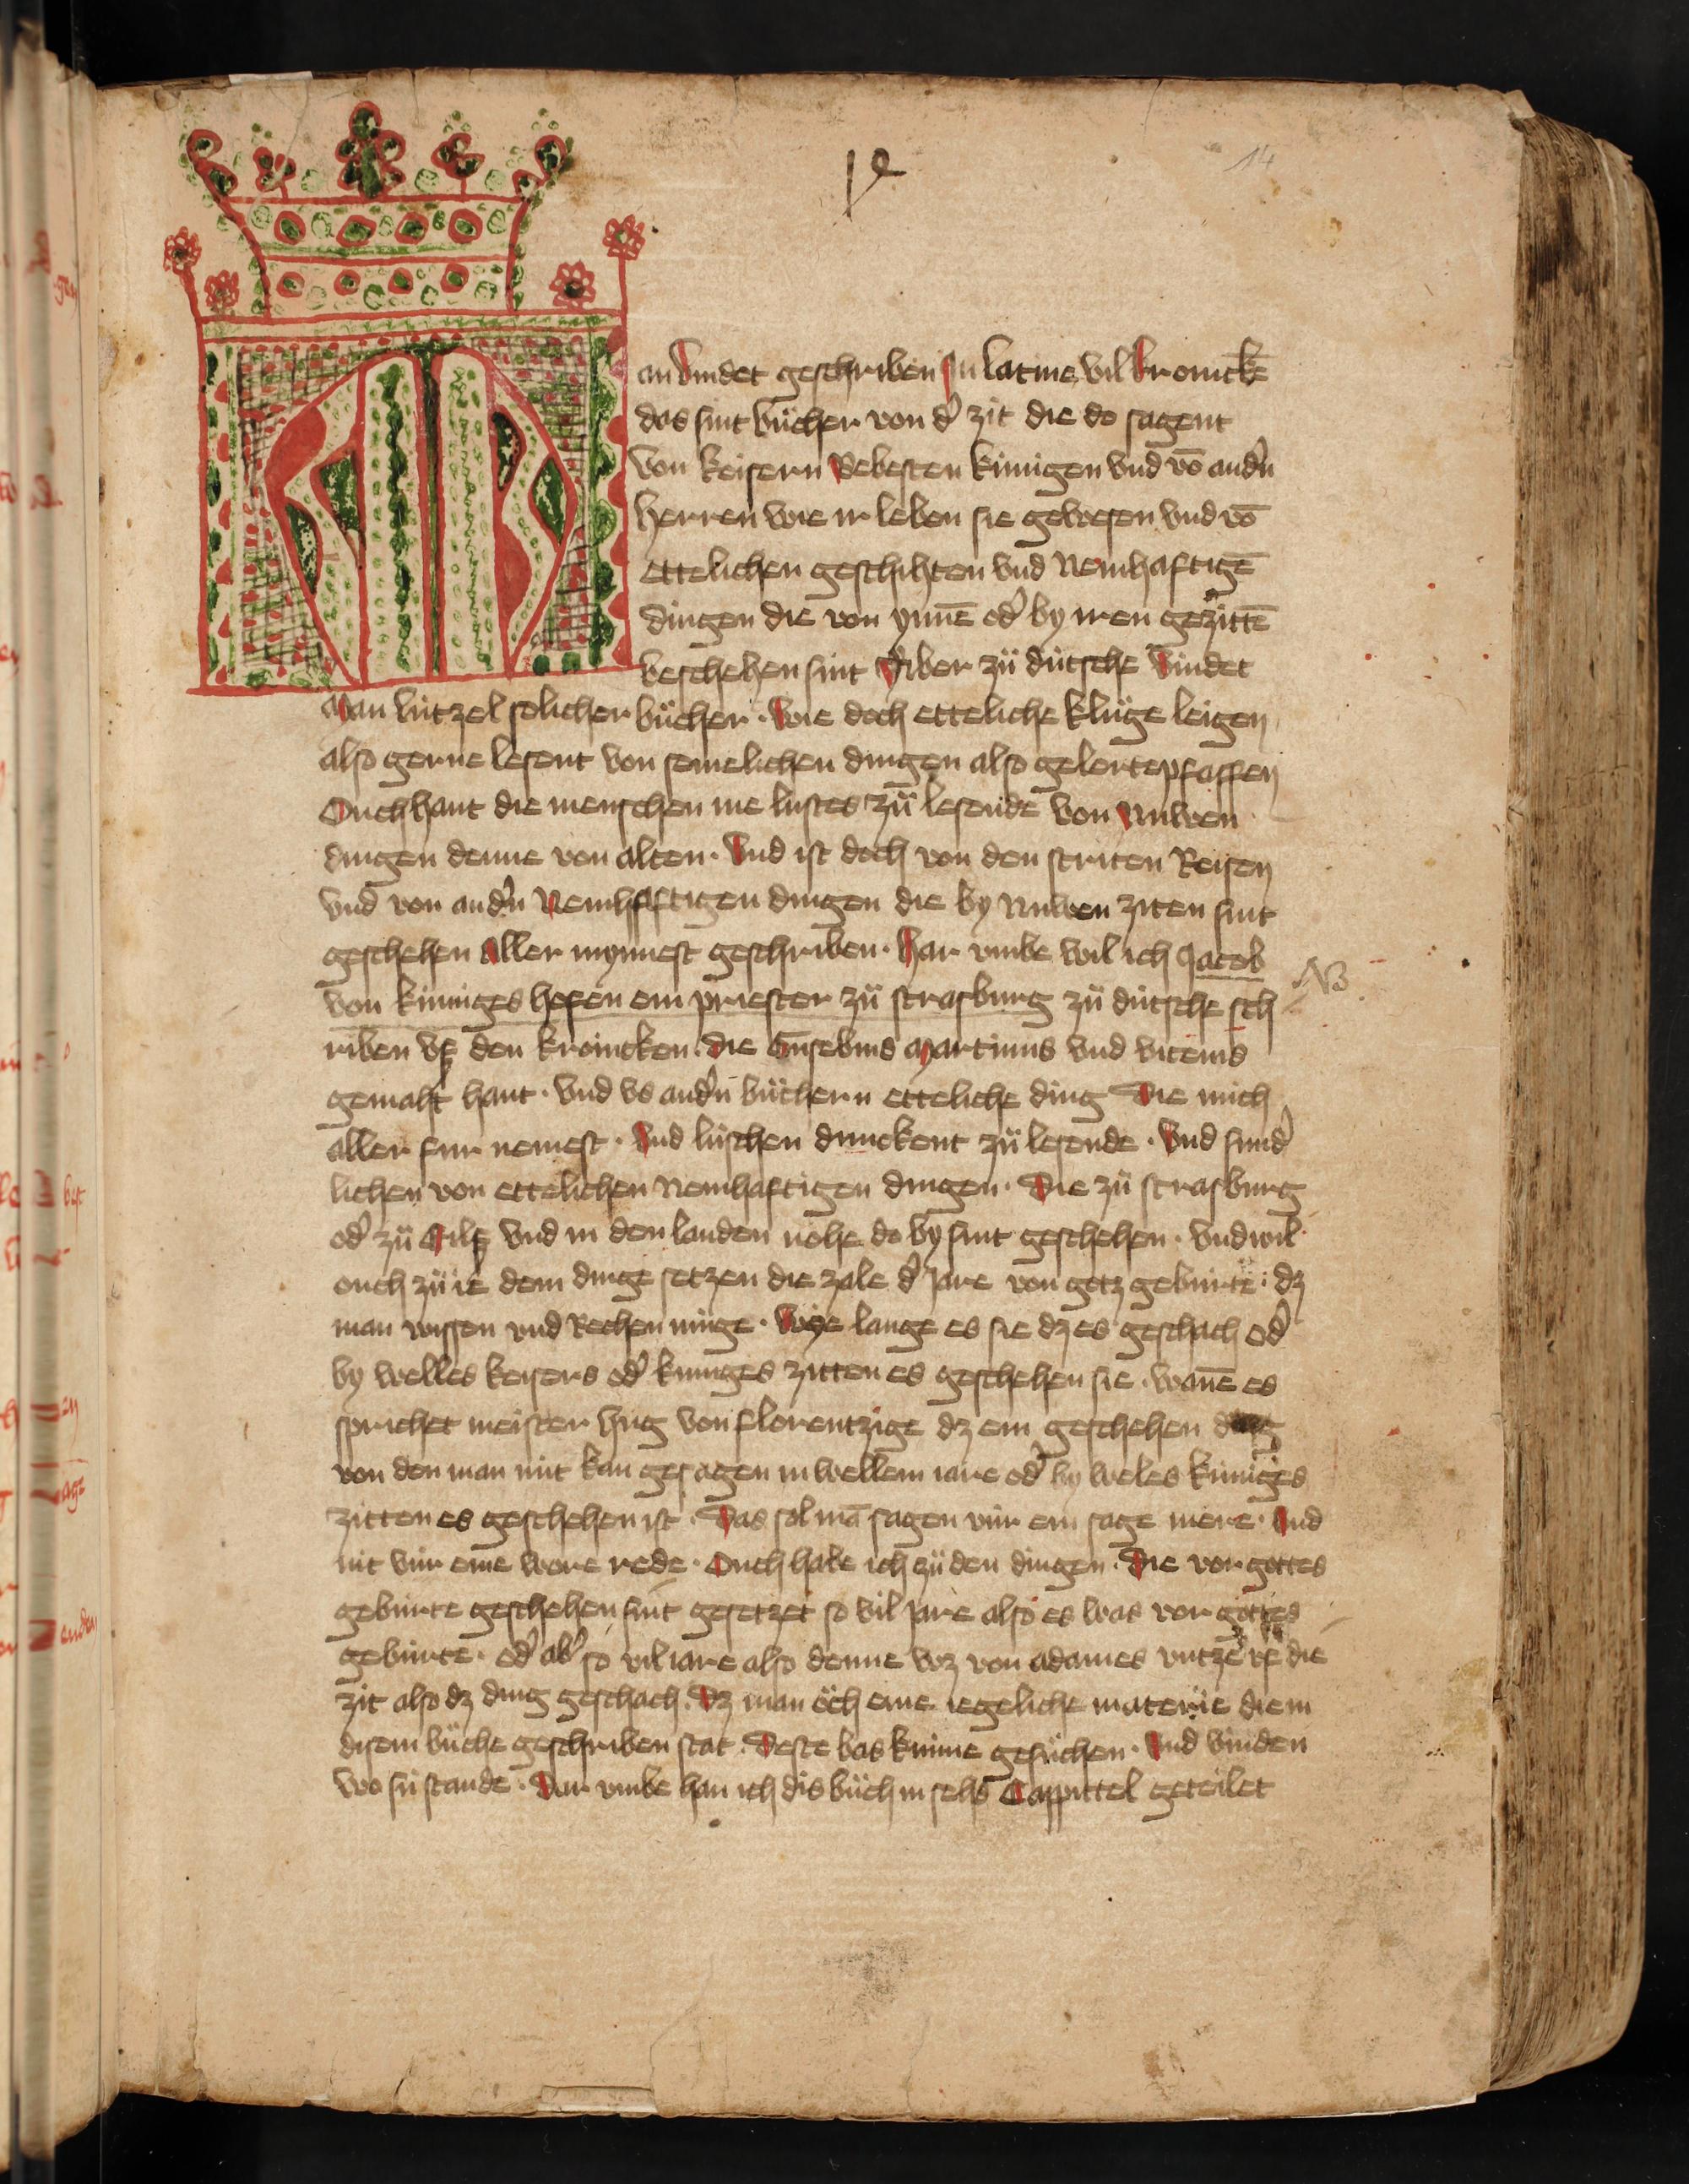 14
M
an vindet geschriben In latine vil kronickē
das sint bücher von d' zit die do sagent
von keisern Bebesten künigen vnd vō and'n
herren wie ir leben sie gewesen vnd vō
ettelichen geschihten vnd Nemhaftigē
dingen die von ynnē od' by iren gezittē
beschehen sint Aber zü dütsche vindet
Man lützel solicher bücher · wie doch etteliche klüge leigen
also gerne lesent von semelichen dingen also gelerte pfaffen
Ouch hant die menschen me lustes zü lesende von Nuwen
dingen denne von alten · Vnd ist doch von den striten Reisen
vnd von and'n Nemhaftigen dingen die by Nuwen ziten sint
geschehen Aller mynnest geschriben · Har vmbe wil ich Jacob
NB
von küniges hofen ein priester zü strasburg zü dütsche sch
riben vß den kronicken · die Eusebius Martinus vnd vitenis
gemaht hant · vnd vs and'n büchern etteliche ding Die mich
aller fur nemest · Vnd lüschen dunckent zü lesende · Vnd sund'
lichen von ettelichen Nemhaftigen dingen · Die zü strasburg
od' zü Eilß vnd in den landen nohe do by sint geschehen · vnd wil
ouch zü ie dem dinge setzen die zale d' Jare von gotz gebürte · dz
man wissen vnd Rechen müge · Wye lange es sie dz es geschach od'
by welles keisers od' kuniges zitten es geschehen sie · wanē es
sprichet meister hug von florentzige dz ein geschehen ding
von den man nüt kan gesagen in wellem iare od' by weles küniges
zitten es geschehen ist · Das sol mā sagen vür ein sage mere · Vnd
nit vür eine wore rede · Ouch habe ich zü den dingen · Die vor gottes
gebürte geschehen sint gesetzet so vil Jare also es was vor gottes
gebürte · od' ab' so vil iare also denne wz von adames vntzē vf die
zit also dz ding geschach · Dz man öch eine iegeliche materie die in
disem büche geschriben stat · Deste bas künne gesüchen · Vnd vinden
wo sü stande · Dar vmbe han ich dis büch in sehs Cappittel geteilet